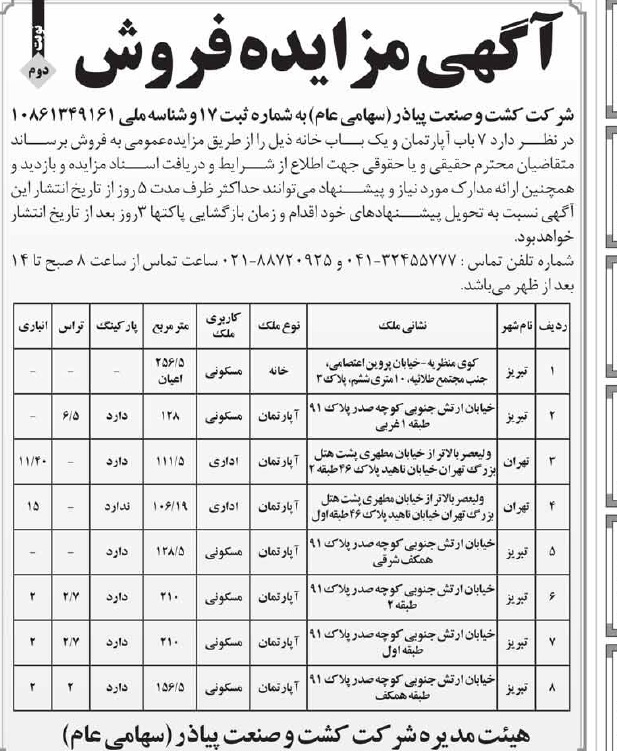 نوبت
دوم
آگهی مزایده فروش
شرکت کشت و صنعت پیاذر (سهامی عام) به شماره ثبت ۱۷ و شناسه ملی ۱۰۸۶۱۳۴۹۱۶۱
در نظر دارد ۷ باب آپارتمان و یک باب خانه ذیل را از طریق مزایده عمومی به فروش برساند
متقاضیان محترم حقیقی و یا حقوقی جهت اطلاع از شرایط و دریافت اسناد مزایده و بازدید و
همچنین ارائه مدارک مورد نیاز و پیشنهاد می‌توانند حداکثر ظرف مدت ۵ روز از تاریخ انتشار این
آگهی نسبت به تحویل پیشنهادهای خود اقدام و زمان بازگشایی پاکتها ۳ روز بعد از تاریخ انتشار
خواهد بود.
شماره تلفن تماس : ۳۲۴۵۵۷۷۷-۰۴۱ و ۸۸۷۲۰۹۲۵-۰۲۱ ساعت تماس از ساعت ۸ صبح تا ۱۴
بعد از ظهر می‌باشد.
ردیف نام شهر نشانی ملک نوع ملک کاربری ملک متر مربع پارکینگ تراس انباری
۱ تبریز کوی منظریه-خیابان پروین اعتصامی، جنب مجتمع طلائیه، ۱۰ متری ششم، پلاک ۳ خانه مسکونی ۲۵۶/۵ اعیان - - -
۲ تبریز خیابان ارتش جنوبی کوچه صدر پلاک ۹۱ طبقه ۱ غربی آپارتمان مسکونی ۱۲۸ دارد ۶/۵ -
۳ تهران ولیعصر بالاتر از خیابان مطهری پشت هتل بزرگ تهران خیابان ناهید پلاک ۴۶ طبقه ۲ آپارتمان اداری ۱۱۱/۵ دارد - ۱۱/۴۰
۴ تهران ولیعصر بالاتر از خیابان مطهری پشت هتل بزرگ تهران خیابان ناهید پلاک ۴۶ طبقه اول آپارتمان اداری ۱۰۶/۱۹ ندارد - ۱۵
۵ تبریز خیابان ارتش جنوبی کوچه صدر پلاک ۹۱ همکف شرقی آپارتمان مسکونی ۱۲۸/۵ دارد - -
۶ تبریز خیابان ارتش جنوبی کوچه صدر پلاک ۹۱ طبقه ۲ آپارتمان مسکونی ۲۱۰ دارد ۲/۷ ۲
۷ تبریز خیابان ارتش جنوبی کوچه صدر پلاک ۹۱ طبقه اول آپارتمان مسکونی ۲۱۰ دارد ۲/۷ ۲
۸ تبریز خیابان ارتش جنوبی کوچه صدر پلاک ۹۱ طبقه همکف آپارتمان مسکونی ۱۵۶/۵ دارد ۲ ۲
هیئت مدیره شرکت کشت و صنعت پیاذر (سهامی عام)